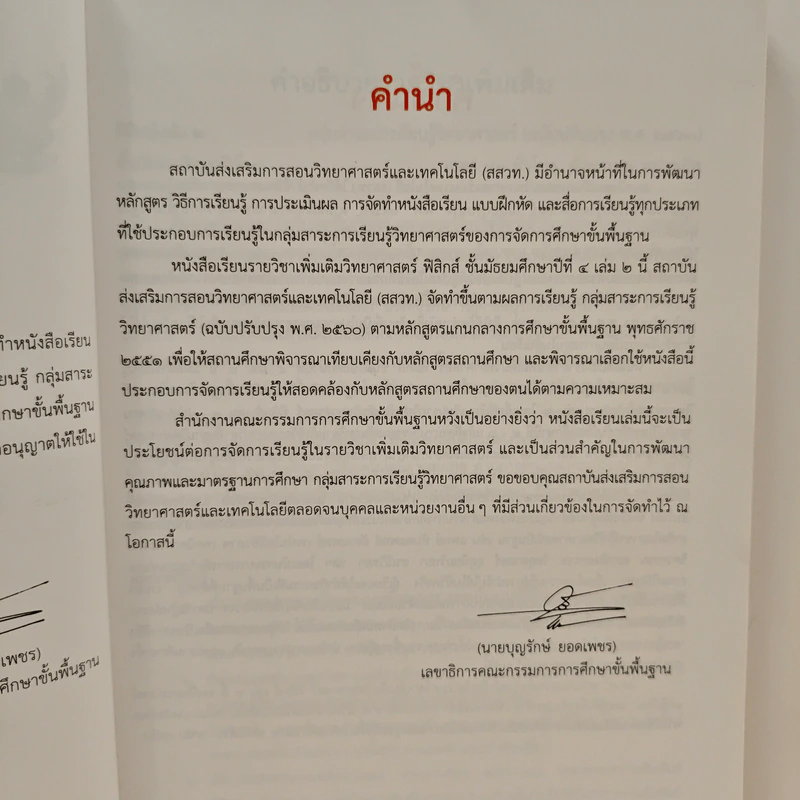 ทำหนังสือเรียน
ยนรู้ กลุ่มสาระ
กษาขั้นพื้นฐาน
อนุญาตให้ใช้ใน
เพชร)
ศึกษาขั้นพื้นฐาน
คำนำ
สถาบันส่งเสริมการสอนวิทยาศาสตร์และเทคโนโลยี (สสวท.) มีอำนาจหน้าที่ในการพัฒนา
หลักสูตร วิธีการเรียนรู้ การประเมินผล การจัดทำหนังสือเรียน แบบฝึกหัด และสื่อการเรียนรู้ทุกประเภท
ที่ใช้ประกอบการเรียนรู้ในกลุ่มสาระการเรียนรู้วิทยาศาสตร์ของการจัดการศึกษาขั้นพื้นฐาน
หนังสือเรียนรายวิชาเพิ่มเติมวิทยาศาสตร์ ฟิสิกส์ ชั้นมัธยมศึกษาปีที่ ๔ เล่ม ๒ นี้ สถาบัน
ส่งเสริมการสอนวิทยาศาสตร์และเทคโนโลยี (สสวท.) จัดทำขึ้นตามผลการเรียนรู้ กลุ่มสาระการเรียนรู้
วิทยาศาสตร์ (ฉบับปรับปรุง พ.ศ. ๒๕๖๐) ตามหลักสูตรแกนกลางการศึกษาขั้นพื้นฐาน พุทธศักราช
๒๕๕๑ เพื่อให้สถานศึกษาพิจารณาเทียบเคียงกับหลักสูตรสถานศึกษา และพิจารณาเลือกใช้หนังสือนี้
ประกอบการจัดการเรียนรู้ให้สอดคล้องกับหลักสูตรสถานศึกษาของตนได้ตามความเหมาะสม
สำนักงานคณะกรรมการการศึกษาขั้นพื้นฐานหวังเป็นอย่างยิ่งว่า หนังสือเรียนเล่มนี้จะเป็น
ประโยชน์ต่อการจัดการเรียนรู้ในรายวิชาเพิ่มเติมวิทยาศาสตร์ และเป็นส่วนสำคัญในการพัฒนา
คุณภาพและมาตรฐานการศึกษา กลุ่มสาระการเรียนรู้วิทยาศาสตร์ ขอขอบคุณสถาบันส่งเสริมการสอน
วิทยาศาสตร์และเทคโนโลยีตลอดจนบุคคลและหน่วยงานอื่น ๆ ที่มีส่วนเกี่ยวข้องในการจัดทำไว้ ณ
โอกาสนี้
(นายบุญรักษ์ ยอดเพชร)
เลขาธิการคณะกรรมการการศึกษาขั้นพื้นฐาน